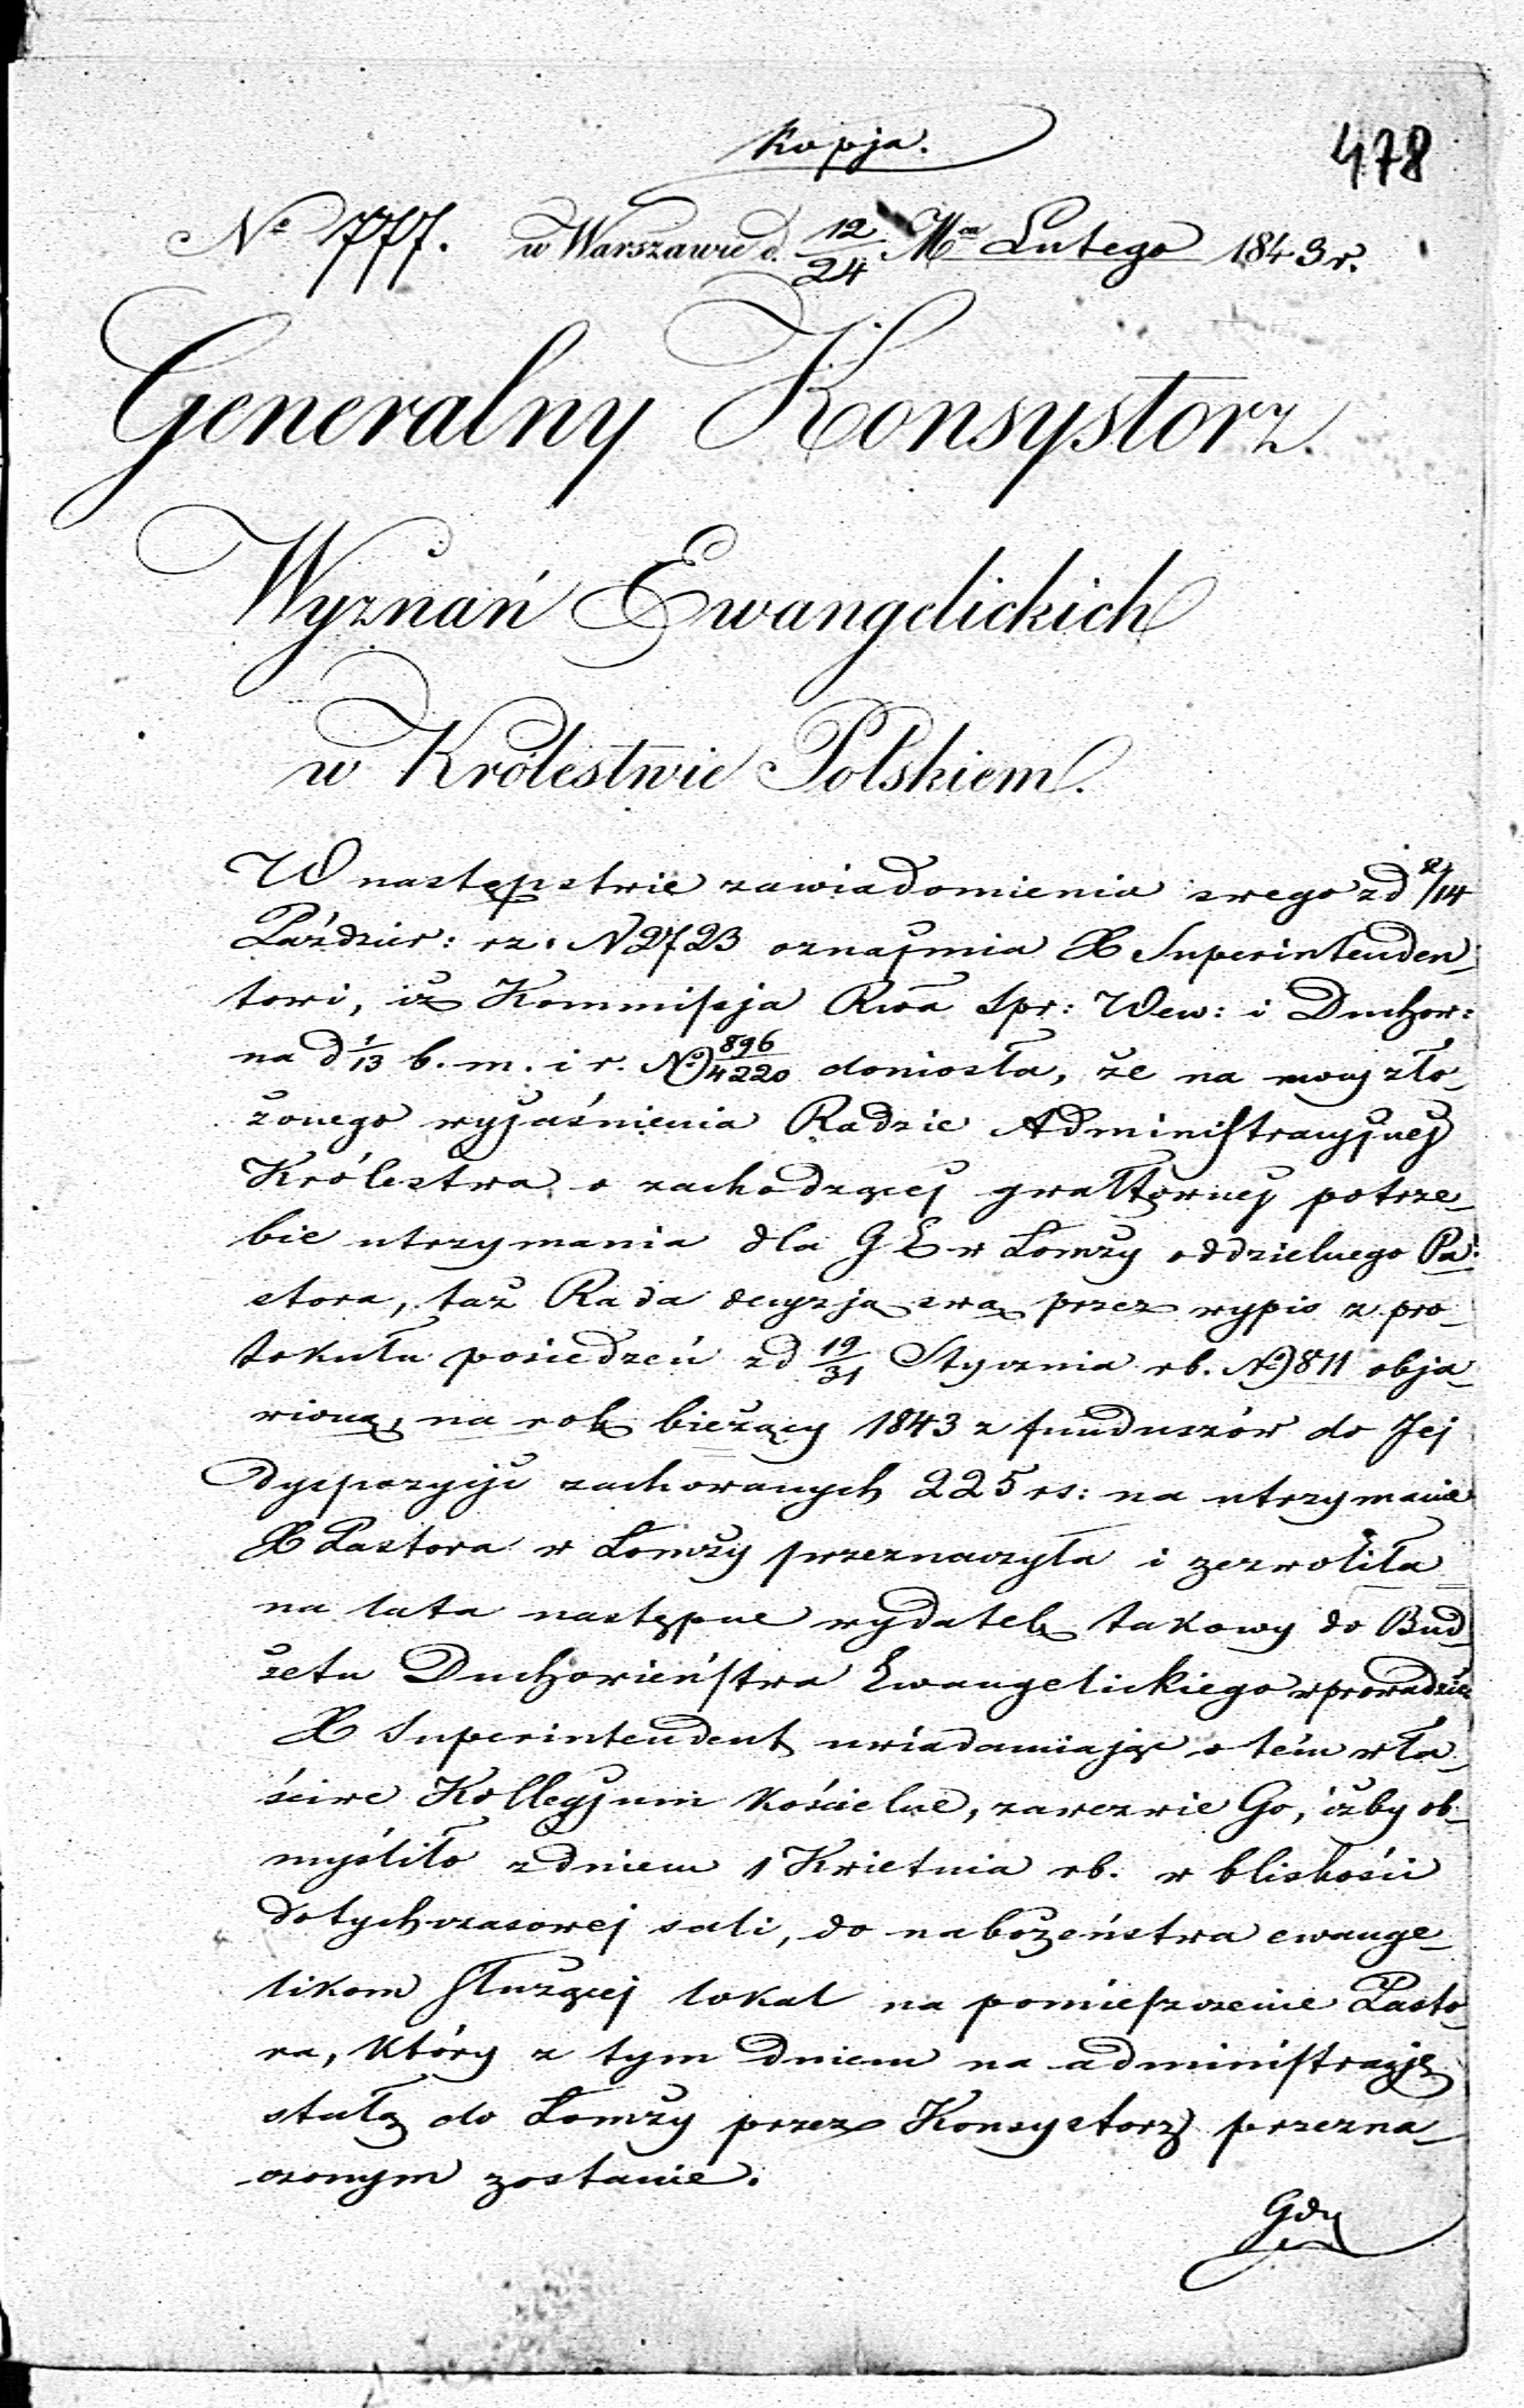 Kopja.
478
Nº 777. w Warszawie d. 12/24 Mca Lutego 1843 r.
Generalny Konsystorz
Wyznań Ewangelickich
w Królestwie Polskiem.
W następstwie zawiadomienia swego z d 2/14
Paździer: rz. N 2723 oznajmia X Superintenden„
towi, iż Kommissja Rwa Spr: Wew: i Duchow:
na d 1/13 b. m. i r. No 896/4220 doniosła, że na mocy zło„
żonego wyjaśnienia Radzie Administracyjnej
Królestwa o zachodzącej gwałtownej potrze„
bie utrzymania dla G E w Łomży oddzielnego Pa„
stora, taż Rada decyzją swą przez wypis z pro„
tokułu posiedzeń z d 19/31 Stycznia rb. No 811 obja„
wioną, na rok bieżący 1843 z funduszów do Jej
dyspozycyi zachowanych 225 rs: na utrzymanie
X Pastora w Łomży przeznaczyła i zezwoliła
na lata następne wydatek takowy do Bud„
żetu Duchowieństwa Ewangelickiego wprowadzić
X Superintendent uwiadamiając o tém wła„
ściwe Kollegjum Kościelne, zawezwie Go, iżby ob„
myśliło z dniem 1 Kwietnia rb. w bliskości
dotychczasowej sali, do nabożeństwa ewange„
likom służącej lokal na pomieszczenie Pasto„
ra, który z tym dniem na administracje
stałą do Łomży przez Konsystorz przezna„
czonym zostanie.
Gdy